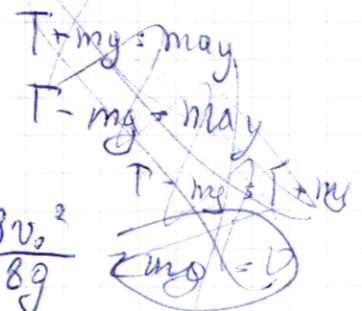 T + mg = may
T - mg = may
T - mg = T + mg
3v₀²/8g
2mg = 0